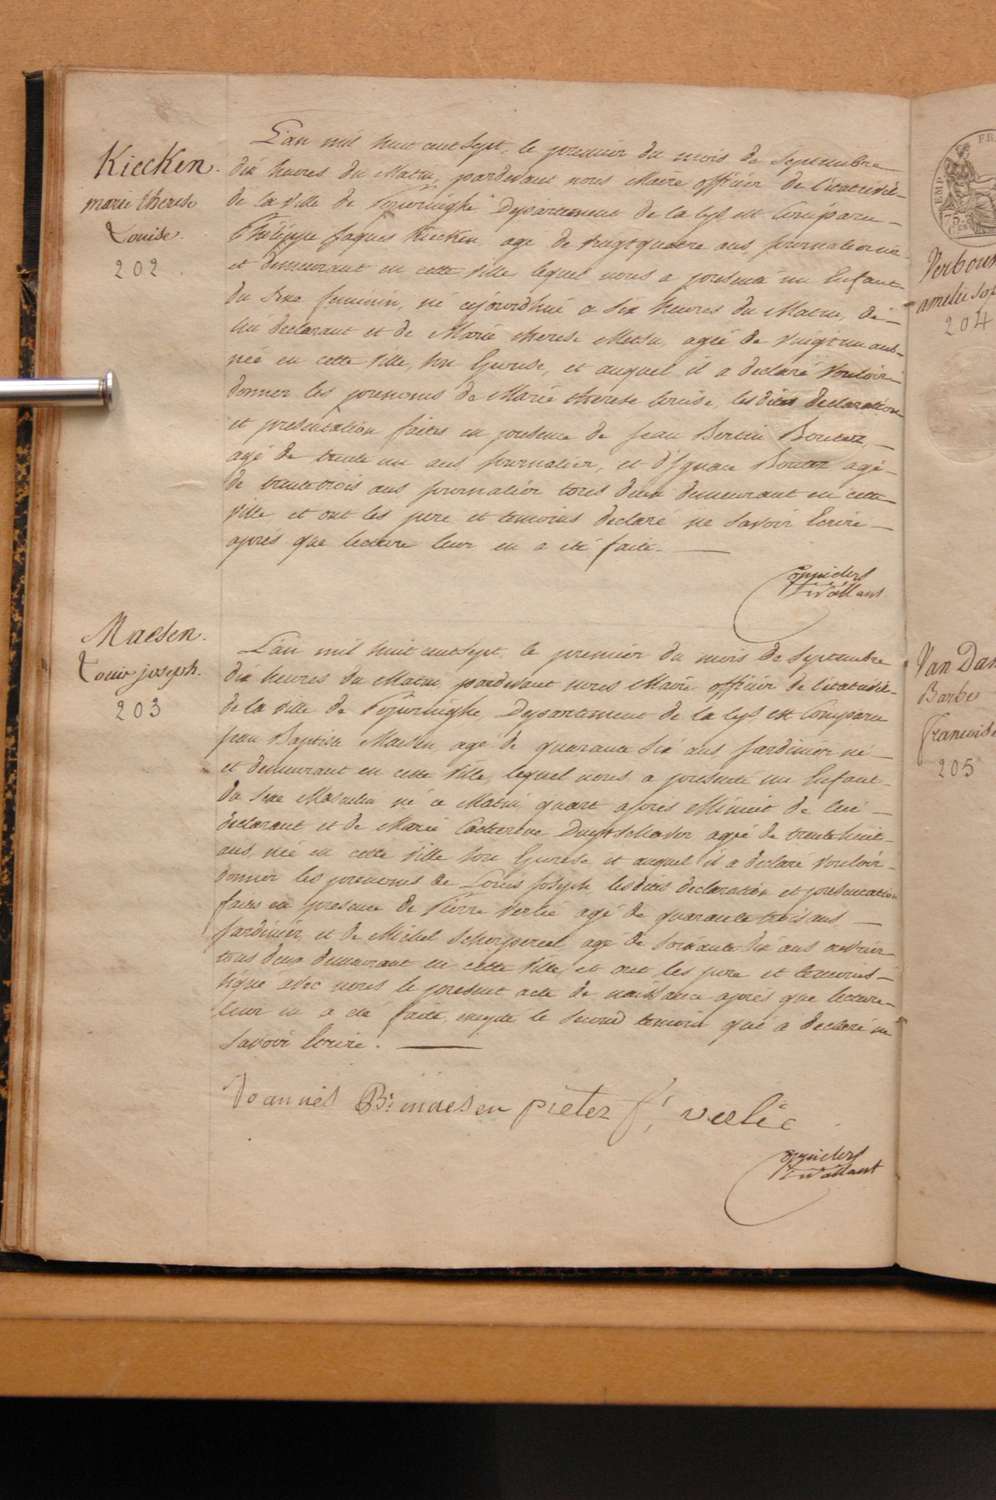 Kiecken
marie therese
Louise
202
L'an mil huit cent Sept, le premier du mois de Septembre
dix heures du Matin, pardevant nous Maire officier de l'état civil
de la ville de Poperinghe Departement de la Lys est Comparu
Philippe Jaques Kiecken, agé de vingt quatre ans, journalier né
et demeurant en cette ville lequel nous a presenté un Enfant
du Sexe feminin, né cejourdhui a Six heures du Matin, de
lui declarant et de Marie therese agée de vingt un ans
née en cette ville, Son Epouse, et auquel il a declaré vouloir
donner les prenoms de Marie therese Louise, les dites declaration
et presentation faites en presence de Jean Bertin Boutez,
agé de trente un ans journalier, et d'Ignace Boutez agé
de trente trois ans journalier tous deux demeurant en cette
ville et ont les pere et temoins declaré ne Savoir Ecrire
après que lecture leur en a été faite.
Maesen
Louis joseph
203
L'an mil huit cent Sept, le premier du mois de Septembre
dix heures du Matin, pardevant nous Maire officier de l'état civil
de la ville de Poperinghe, Departement de la Lys est Comparu
Jean Baptiste Maesen, agé de quarante Six ans Jardinier né
et demeurant en cette ville, lequel nous a presenté un Enfant
du Sexe Masculin né ce Matin, quart après Minuit de lui
declarant et de Marie Catherine agée de trente huit
ans, née en cette ville Son Epouse, et auquel il a declaré vouloir
donner les prenoms de Louis Joseph, les dites declaration et presentation
faites en presence de Pierre Verlié agé de quarante trois ans
Jardinier, et de Michel agé de Soixante dix ans ouvrier
tous deux demeurant en cette ville, et ont les pere et temoins
Signé avec nous le present acte de naissance après que lecture
leur en a été faite excepté le Second temoin qui a declaré ne
Savoir Ecrire.
Joannes B: maesen pieter f, verlie
Verbou
amelie So
204
Van Dan
Barbe
Francoise
205